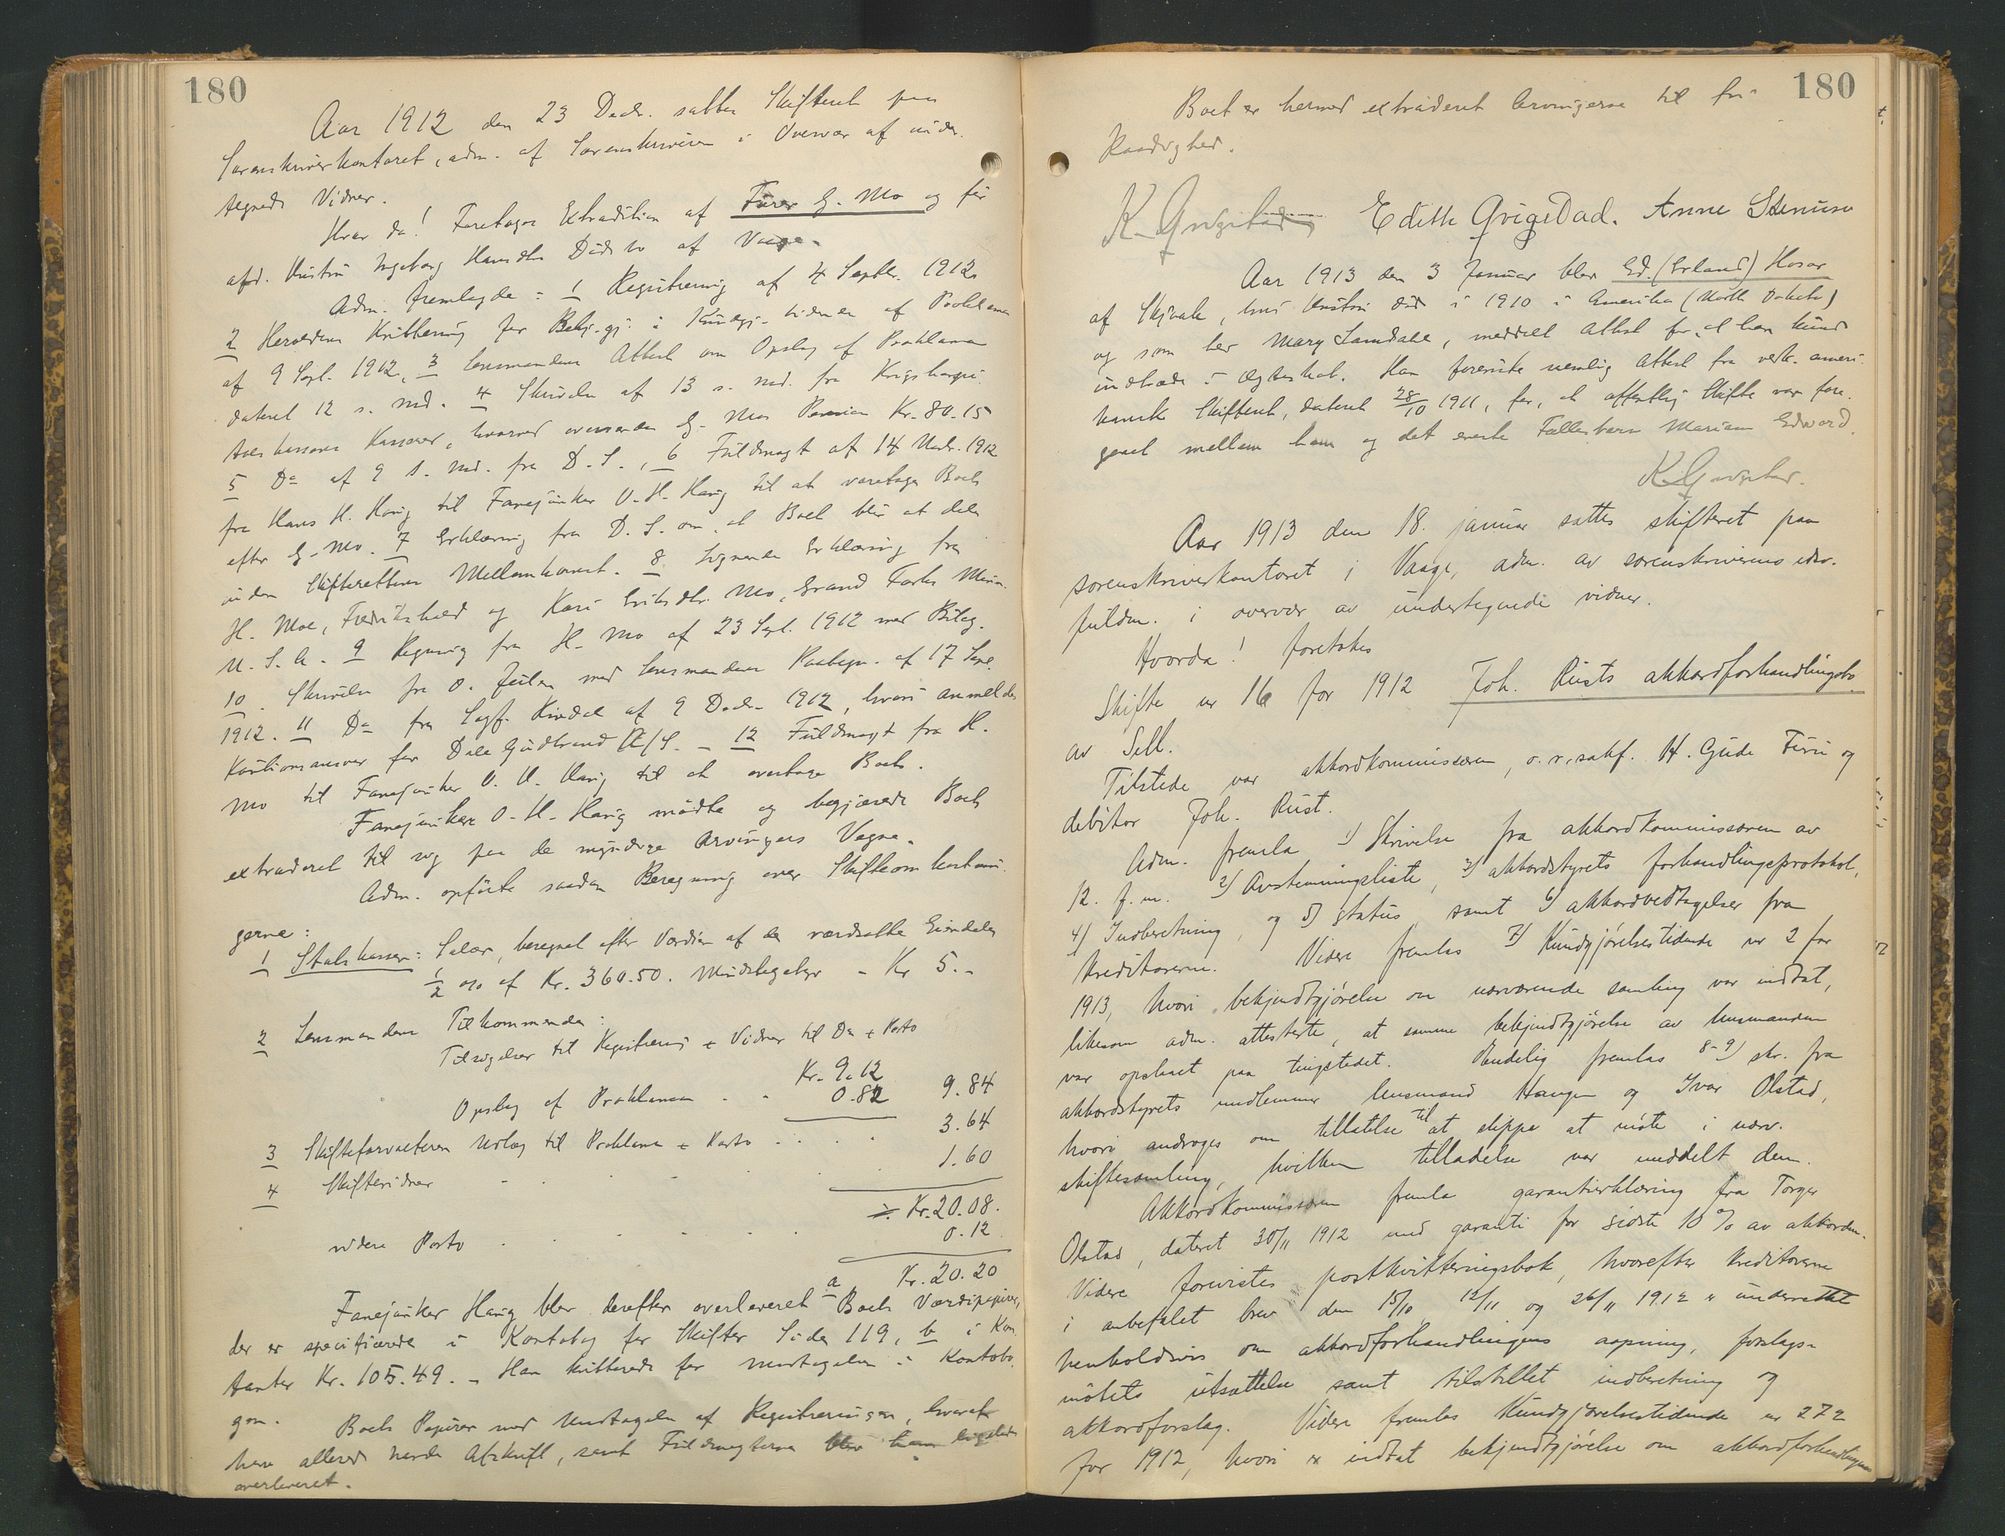 180
Aar 1912 den 23 Decbr. sattes Skifteret paa
Sorenskriverkontoret, adm. af Sorenskriveren i Overvær af under-
tegnede Vidner.
Hvor da! Foretoges Extradition af Furer E. Mo og før
afd. Hustru Ingeborg Hansdtr Dødsbo af Vaage.
Adm. fremlagde: 1 Registrering af 4 Septbr. 1912
2 Heroldens Kvittering for Bekj.gj. i Kundgj. tidende af Proklama
af 9 Sept. 1912, 3 Lensmandens Attest om Opslag af Proklama
dateret 12 s. md. 4 Skrivelse af 13 s. md. fra Krigshospi-
Kasserer, hvorved oversendes E. Mos Pension Kr. 80.15
5 Do af 9 s. md. fra D. S., 6 Fuldmagt af 14 1912
fra Hans H. Haug til Fanejunker O. H. Haug til at varetage Boets
efter E. Mo. 7 Erklæring fra D. S. om at Boet blir at dele
uden Skifterettens Mellemkomst. 8 Lignende Erklæring fra
H. Moe, Fredrikshald og Kari Eriksdtr. Mo, Grand Forks
U. S. A. 9 Regning fra H. Mo af 23 Sept. 1912 med Bilag.
10. Skrivelse fra O. med Lensmandens Paategn. af 17 Sept.
1912. 11 Do fra Sagf. Kindal af 9 Decbr. 1912, hvori anmeldes
Kautionsansvar for Dale Gudbrand A/S. - 12 Fuldmagt fra H.
Mo til Fanejunker O. H. Haug til at overtage Boets.
Fanejunker O. H. Haug mødte og begjærede Boets
extraderet til sig paa de myndige Arvingers Vegne.
Adm. opførte saadan Beregning over Skifteomkostnin-
gerne:
1 Statskassen: Salær, beregnet efter Værdien af de værdsatte Eiendeler
1/2 o/o af Kr. 360.50. Mindstegebyr - Kr 5.-
2 Lensmandens Tilkommende:
Tilsigelser til Registrering + Vidner til Do + Porto
Kr. 9.12
Opslag af Proklama . . 0.82 9.84
3 Skifteforvalteren Udlæg til Proklama + Porto . . . . 3.64
4 Skiftevidner . . . . 1.60
Kr. 20.08.
videre Porto . . . . . 0.12
Kr. 20.20
Fanejunker Haug blev derefter overleveret a Boets Værdipapirer,
der er specificerede i Kontobog for Skifter Side 119, b i Kon-
tanter Kr. 105.49. - Han kvitterede for Modtagelsen i Kontobo-
gen.
Boets Papirer med Undtagelse af Registreringen, hvoraf
han allerede havde Afskrift, samt Fuldmagterne blev ham ligeledes
overleveret.
180
Boet er hermed extraderet Arvingerne til fri
Raadighed.
K. Grigstad Edith Grigstad. Anne Stenersen
Aar 1913 den 3 Januar blev Ed. (Erland) Hosar
af Skjvale, hvis Hustru døde i 1910 i Amerika (North Dakota)
og som hed Mary Samdahl, meddelt Attest for, at han kunde
indtræde i Ægteskab. Han foreviste nemlig Attest fra vedk. ameri-
kanske Skifteret, dateret 28/10 1911, for, at offentlig Skifte var fore-
gaaet mellem ham og det eneste Fællesbarn Mariam Edward.
K Grigstad.
Aar 1913 den 18. januar sattes skifteret paa
sorenskriverkontoret i Vaage, adm. av sorenskriverens edsv.
fuldm. i overvær av undertegnede vidner.
Hvorda! foretokes
Skifte nr 16 for 1912 Joh. Rusts akkordforhandlingsbo
av Sell.
Tilstede var akkordkommissæren, o. r. sakf. H. Gude Furu og
debitor Joh. Rust.
Adm. fremla 1) Skrivelse fra akkordkommissæren av
12. f.m. 2) Avstemningsliste, 3) akkordstyrets forhandlingsprotokol,
4) Indberetning, og 5) status samt 6) akkordvedtagelser fra
kreditorerne. Videre fremlas 7) Kundgjørelsestidende nr 2 for
1913, hvori bekjendtgjørelse om nærværende samling var indtat,
likesom adm. attesterte, at samme bekjendtgjørelse av lensmanden
var opslaat paa tingstedet. Endelig fremlas 8-9) skr. fra
akkordstyrets medlemmer lensmand Haugen og Ivar Olstad,
hvori androges om tillatelse til at slippe at møte i nærv.
skiftesamling, hvilken tilladelse var meddelt dem.
Akkordkommissæren fremla garantierklæring fra Torger
Olstad, dateret 30/11 1912 med garanti for sidste 10 % av akkorden.
Videre forevistes postkvitteringsbok, hvorefter kreditorerne
i anbefalet brev den 15/10 12/11 og 26/11 1912 er underrettet
henholdsvis om akkordforhandlingens aapning, forslags-
møtets utsættelse samt tilstillet indberetning og
akkordforslag. Videre fremlas Kundgjørelsestidende nr 272
for 1912, hvori er indtat bekjendtgjørelse om akkordforhandlingens